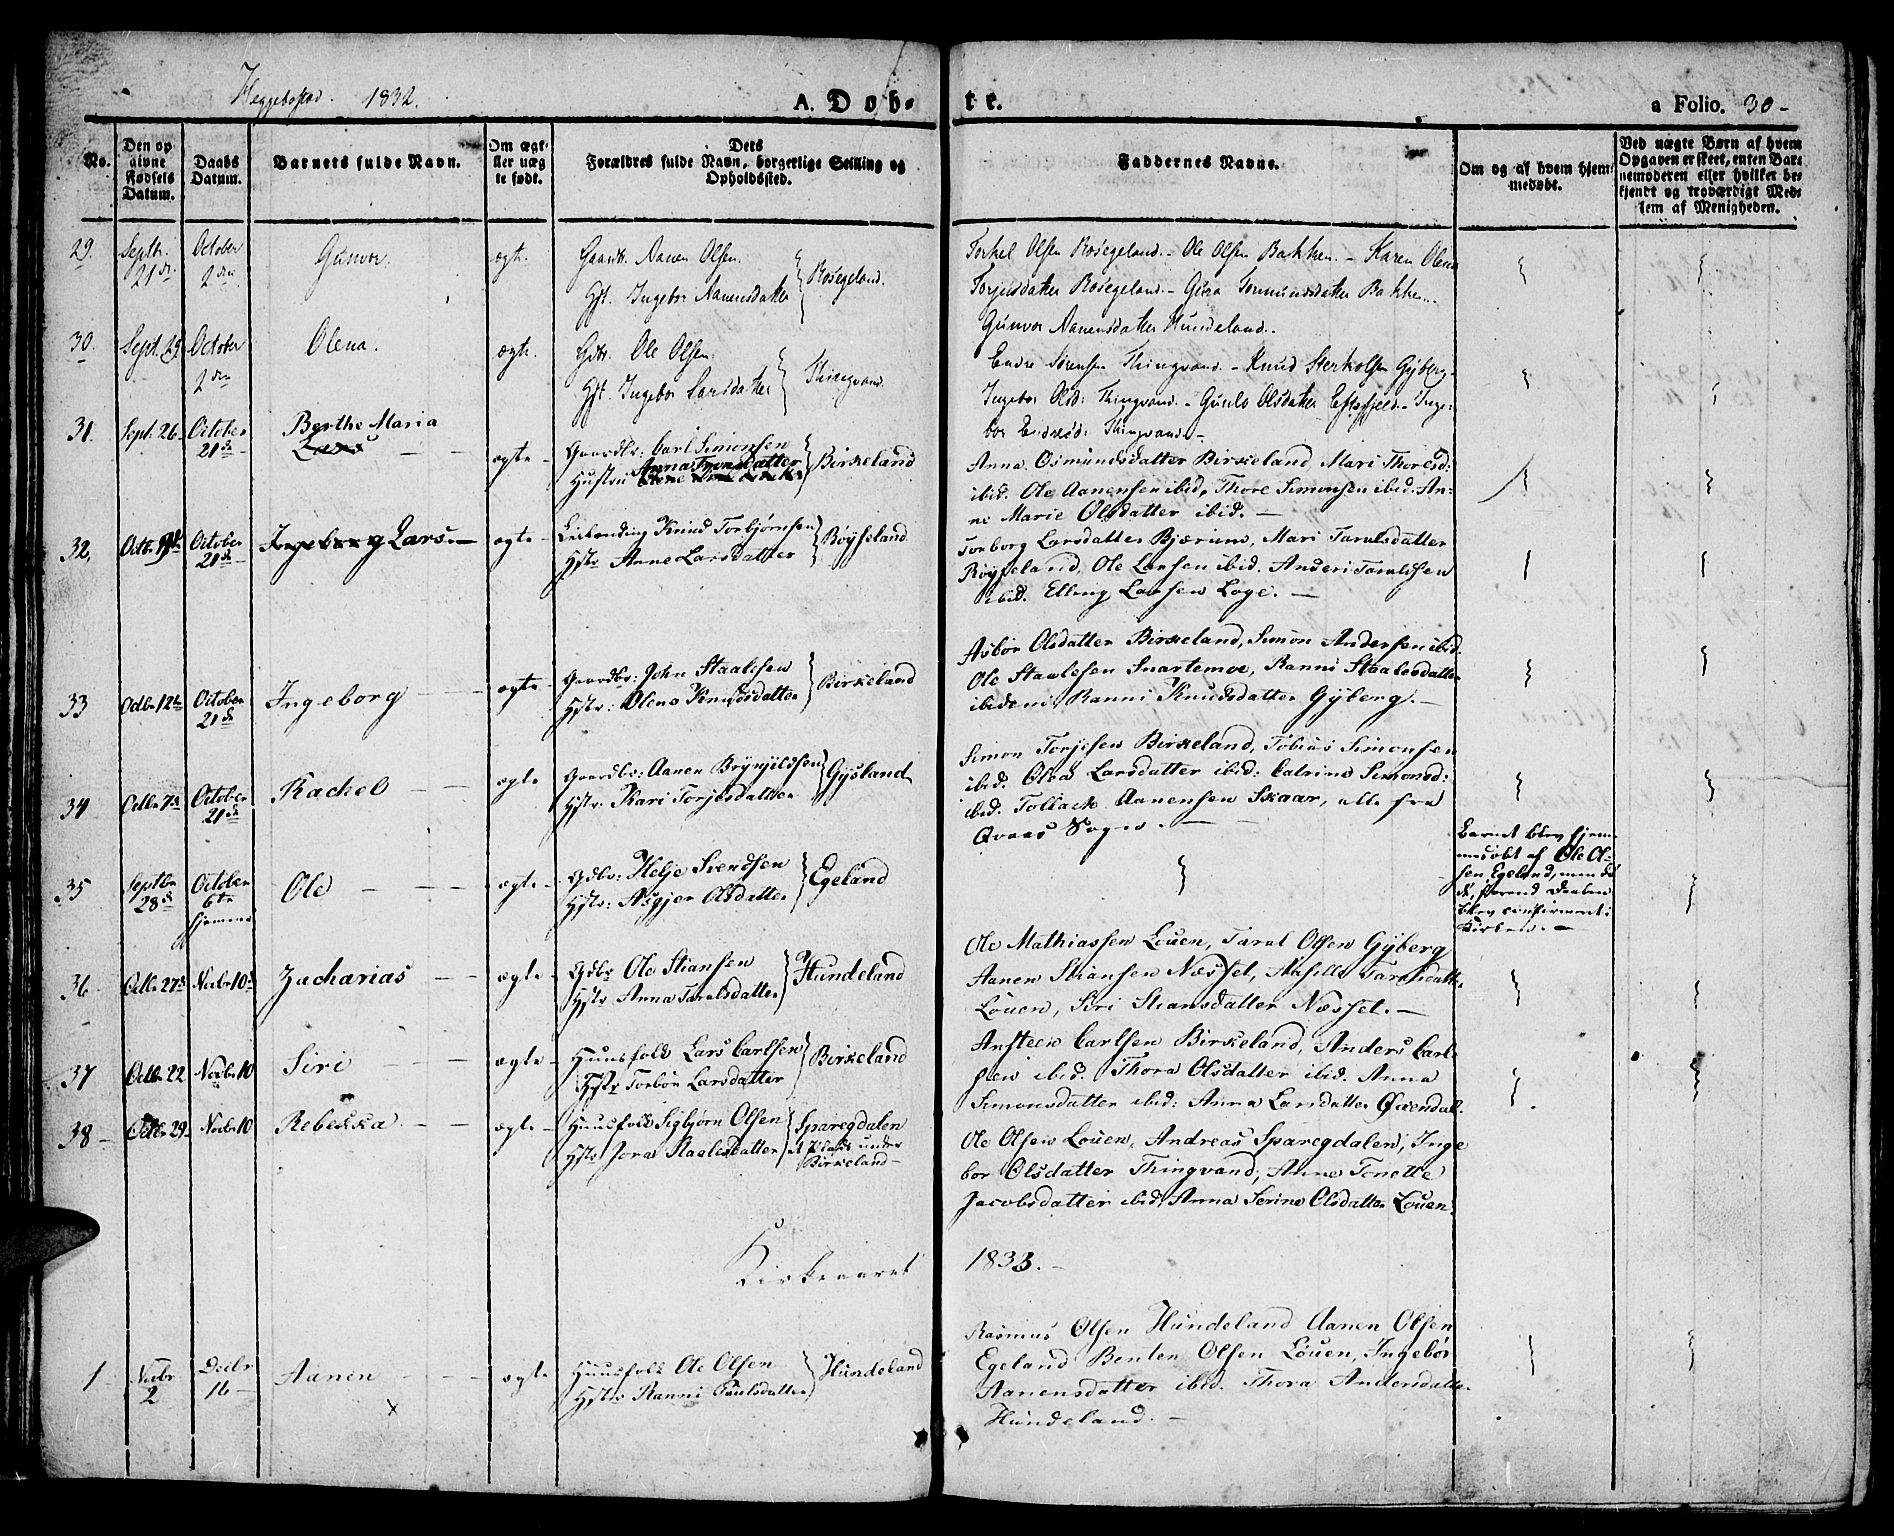 Heggebostad. 1832.
A. Døb-
te.
a Folio. 30-
No.
Den op
givne
Fødsels
Datum.
Daabs
Datum.
Barnets fulde Navn.
Om ægt-
eller uæg
te født.
Dets
Forældres fulde Navn, borgerlige Stilling og
Opholdssted.
Faddernes Navne.
Om og af hvem hjem-
medøbt.
Ved uægte Børn af hvem
Opgaven er skeet, enten Bar-
nemoderen eller hvilket be-
kjendt og troværdigt Med-
lem af Menigheden.
29. Septbr. 21de October 2den Gunvor. ægte. Gaardb. Aanen Olsen.
Hst. Ingebor Aanensdatter Rosegeland.
Torkel Olsen Rosegeland. - Ole Olsen Bakken. - Karen Olena
Torjusdatter Rosegeland. - Guro Tormunsdatter Bakken.
Gunvor Aanensdatter Hundeland.
30. Sept. 29 October 2den Olena. ægte. Gdbr. Ole Olsen.
Hst. Ingebor Larsdatter Thingvand
Endre Sörensen Thingvand. - Knud Sterkolsen Gyberg.
Ingebor Olsd: Thingvand. - Gunlo Olsdatter Eftesfjeld. - Inge-
bor Endresd: Thingvand. -
31. Sept. 26 October 21de Berthe Maria
Lars ægte - Gaardbr: Carl Simonsen
Hustru Anna Tronsdatter Birkeland
Anna Osmundsdatter Birkeland, Mari Thoresd:
ibid. Ole Aanensen ibid, Thore Simonsen ibid. An-
ne Marie Olsdatter ibid. -
32. Octbr October 21de Ingeborg Lars. - ægte - Leilending Knud Torbjørnsen
Hstr Anne Larsdatter Röyseland
Torborg Larsdatter Bjærum, Mari Taralsdatter
Röyseland, Ole Larsen ibid. Anders Taraldsen
ibid. Elling Larsen Loge. -
33 Octbr 12te October 21de Ingeborg ægte - Gaardbr: John Staalesen
Hstr: Olene Knudsdatter Birkeland
Asbor Olsdatter Birkeland, Simon Andersen ibid.
Ole Staalesen Snartemoe, Ranni Staalesdatter
ibidem Ranni Knudsdatter Gyberg. -
34 Octbr 7de October 21de Rachel ægte Gaardbr: Aanen Brynjildsen
Hstr: Kari Torjesdatter Gysland
Simon Torjesen Birkeland, Tobias Simonsen
ibid. Olea Larsdatter ibid: Catrine Simonsd:
ibid. Tollack Aanensen Skaar, alle fra
Qvaas Sogn. -
35 Septbr 28de October 6te hjemme Ole ægte - Gdbr: Helje Svendsen
Hstr: Asgjer Olsdatter Egeland
Barnet blev hjem-
medøbt af Ole Ol-
sen Egeland, men døde
förend Daaben
blev confirmeret i
Kirken. -
36 Octbr 27de Novbr 10de Zacharias ægte - Gdbr Ole Stiansen
Hstr Anna Taralsdatter Hundeland
Ole Mathiassen Löuen, Taral Olsen Gyberg
Aanen Stiansen Næsset, Taralsdatter
Löuen, Siri Stiansdatter Næsset. -
37 Octbr 22 Novbr 10 Siri ægte - Huusfolk Lars Carlsen
Hstr Torbör Larsdatter Birkeland
Ansteen Carlsen Birkeland, Anders Carl-
sen ibid. Thora Olsdatter ibid. Anna
Simonsdatter ibid: Anna Larsdatter Öxendal.
38 - Octbr 29 - Novbr 10 Rebekka ægte - Huusfolk Sigbjørn Olsen
Hstr Jora Staalesdatter Sparegdalen
Plads under
Birkeland -
Ole Olsen Löuen, Andreas Sparegdalen, Inge
bor Olsdatter Thingvand, Anne Tonette
Jacobsdatter ibid, Anna Serine Olsdatter Löuen.
Kirkeaaret 1833. -
1 Novbr 2 Decbr 16 Aanen ægte Huusfolk Ole Olsen
Hstr Ranni Paulsdatter Hundeland
Rasmus Olsen Hundeland Aanen Olsen
Egeland Benten Olsen Löuen, Ingebör
Aanensdatter ibid. Thora Andersdatter
Hundeland. -
x